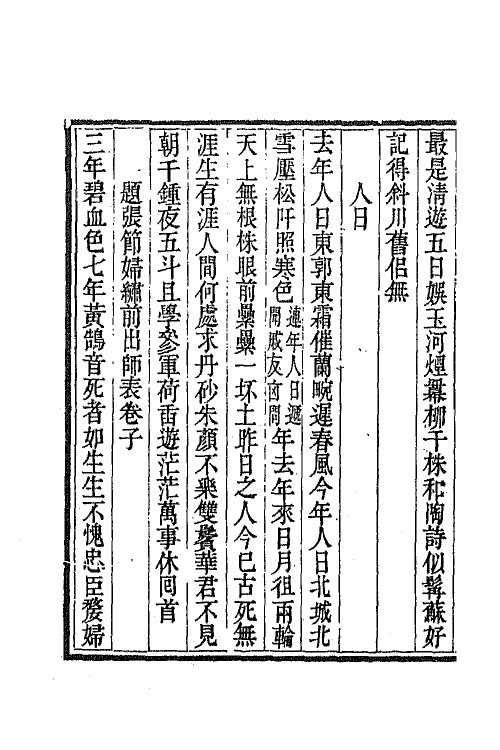 最是清遊五日娛玉河煙羃柳千株和陶詩似髯蘇好
記得斜川舊侶無
人日
去年人日東郭東霜催蘭畹遲春風今年人日北城北
雪壓松阡照寒色連年人日遞聞戚友凶問年去年來日月徂兩輪
天上無根株眼前纍纍一坏土昨日之人今已古死無
涯生有涯人間何處求丹砂朱顏不乘雙鬢華君不見
朝千鍾夜五斗且學參軍荷臿遊茫茫萬事休回首
題張節婦繡前出師表卷子
三年碧血色七年黃鵠音死者如生生不愧忠臣嫠婦